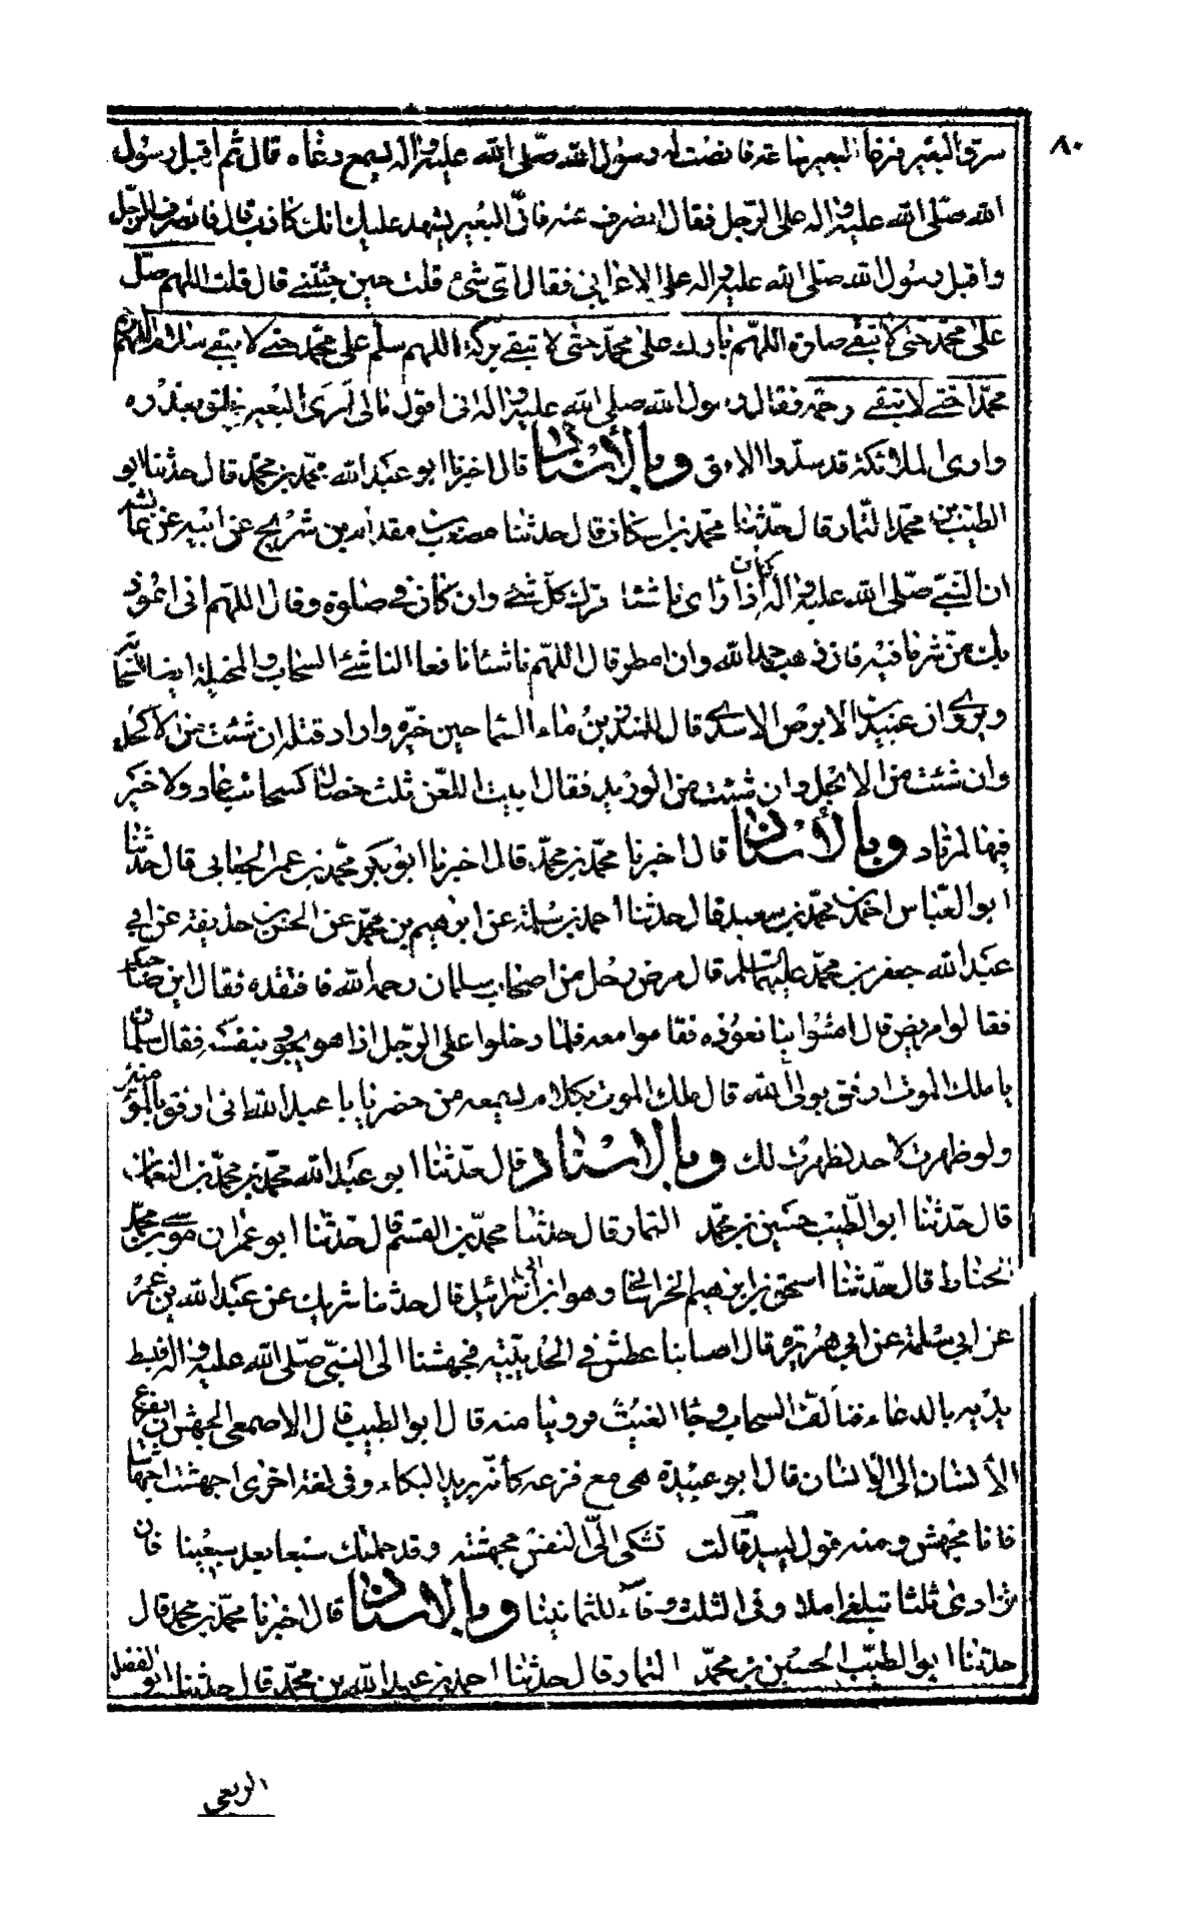 ٨٠
سرق البعير فرغا البعير ساعة فانصت له رسول الله صلى الله عليه واله يسمع رغاه قال ثم اقبل رسول
الله صلى الله عليه واله على الرجل فقال انصرف عنه فان البعير يشهد عليك انك كاذب قال فانصرف الرجل
واقبل رسول الله صلى الله عليه واله على الاعرابي فقال اي شئ قلت حين جئتني قال قلت اللهم صل
على محمد حتى لا تبقى صلوة اللهم بارك على محمد حتى لا تبقى بركة اللهم سلم على محمد حتى لا يبقى سلام اللهم ارحم
محمدا حتى لا تبقى رحمة فقال رسول الله صلى الله عليه واله اني اقول مالي ارى البعير ينطق بعذره
وارى الملائكة قد سدوا الافق وبالاسناد قال اخبرنا ابو عبد الله محمد بن محمد قال حدثنا ابو
الطيب بن محمد التمار قال حدثنا محمد بن اسكان قال حدثنا مصعب بن مقدام بن شريح عن ابيه عن عائشه
ان النبي صلى الله عليه واله كان اذا راى ناشئا ترك كل شئ وان كان في صلوة وقال اللهم اني اعوذ
بك من شر ما فيه فان ذهب حمد الله وان امطر قال اللهم ناشئا نافعا الناشئ السحاب والمخيلة ايضا السحابة
ويروى ان عبيد بن الابرص الاسدي قال للمنذر بن ماء السما حين خيره واراد قتله ان شئت من الاكحل
وان شئت من الابجل وان شئت من الوريد فقال ابيت اللعن ثلث خصال كسحائب عاد ولا خير
فيها لمرتاد وبالاسناد قال اخبرنا محمد بن محمد قال اخبرنا ابو بكر محمد بن عمر الجعابي قال حدثنا
ابو العباس احمد بن محمد بن سعيد قال حدثنا احمد بن سلمة عن ابراهيم بن محمد عن الحسن بن حذيفة عن ابي
عبد الله جعفر بن محمد عليهما السلم قال مرض رجل من اصحاب سلمان رحمه الله فافتقده فقال اين صاحبكم
فقالوا مريض قال امشوا بنا نعوده فقاموا معه فلما دخلوا على الرجل اذا هو يجود بنفسه فقال سلمان
يا ملك الموت ارفق بولي الله قال ملك الموت بكلام يسمعه من حضر يا با عبد الله اني ارفق بالمؤمنين
ولو ظهرت لاحد لظهرت لك وبالاسناد قال حدثنا ابو عبد الله محمد بن محمد بن النعمان
قال حدثنا ابو الطيب حسين بن محمد التمار قال حدثنا محمد بن القسم قال حدثنا ابو عمران موسى بن محمد
الخياط قال حدثنا اسحق بن ابراهيم الخراساني وهو ابن ابي اسرائيل قال حدثنا شريك عن عبد الله بن عمر
عن ابي سلمة عن ابي هريرة قال اصابنا عطش في الحديبية فجهشنا الى النبي صلى الله عليه واله فبسط
يديه بالدعاء فتالف السحاب وجاء الغيث فروينا منه قال ابو الطيب قال الاصمعي الجهش ان يفزع
الانسان الى الانسان قال ابو عبيدة هي مع فزعه كانه يريد البكاء وفي لغة اخرى اجهشت اجهاشا
فانا مجهش ومنه قول لبيد قالت تشكى الي النفس مجهشة وقد حملتك سبعا بعد سبعينا فان
تزادي ثلثا تبلغي املا وفي الثلث وفاء للثمانينا وبالاسناد قال اخبرنا محمد بن محمد قال
حدثنا ابو الطيب الحسين بن محمد التمار قال حدثنا احمد بن عبد الله بن محمد قال حدثنا ابو الفضل
الربعي